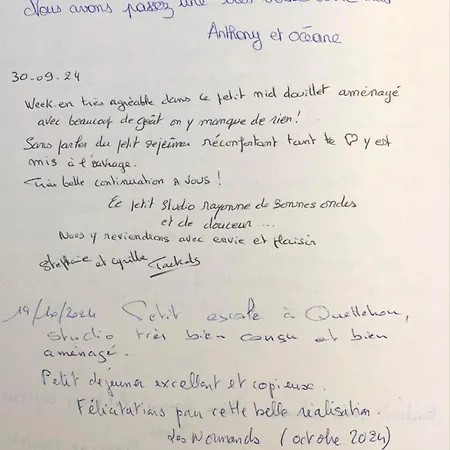 Nous avons passez une très
Anthony et océane
30.09.24
Week.en très agréable dans ce petit nid douillet aménagé
avec beaucoup de goût on y manque de rien !
Sans parler du petit déjeûner réconfortant tant le ♡ y est
mis à l'ouvrage.
Très belle continuation A vous !
Ce petit studio rayonne de bonnes ondes
et de douceur ....
Nous y reviendrons avec envie et plaisir
Stephanie et cyrille
19/10/2024 Petit escale à Quettehou,
studio très bien conçu et bien
aménagé.
Petit déjeuner excellent et copieux.
Félicitations pour cette belle réalisation.
Les Normands (octobre 2024)